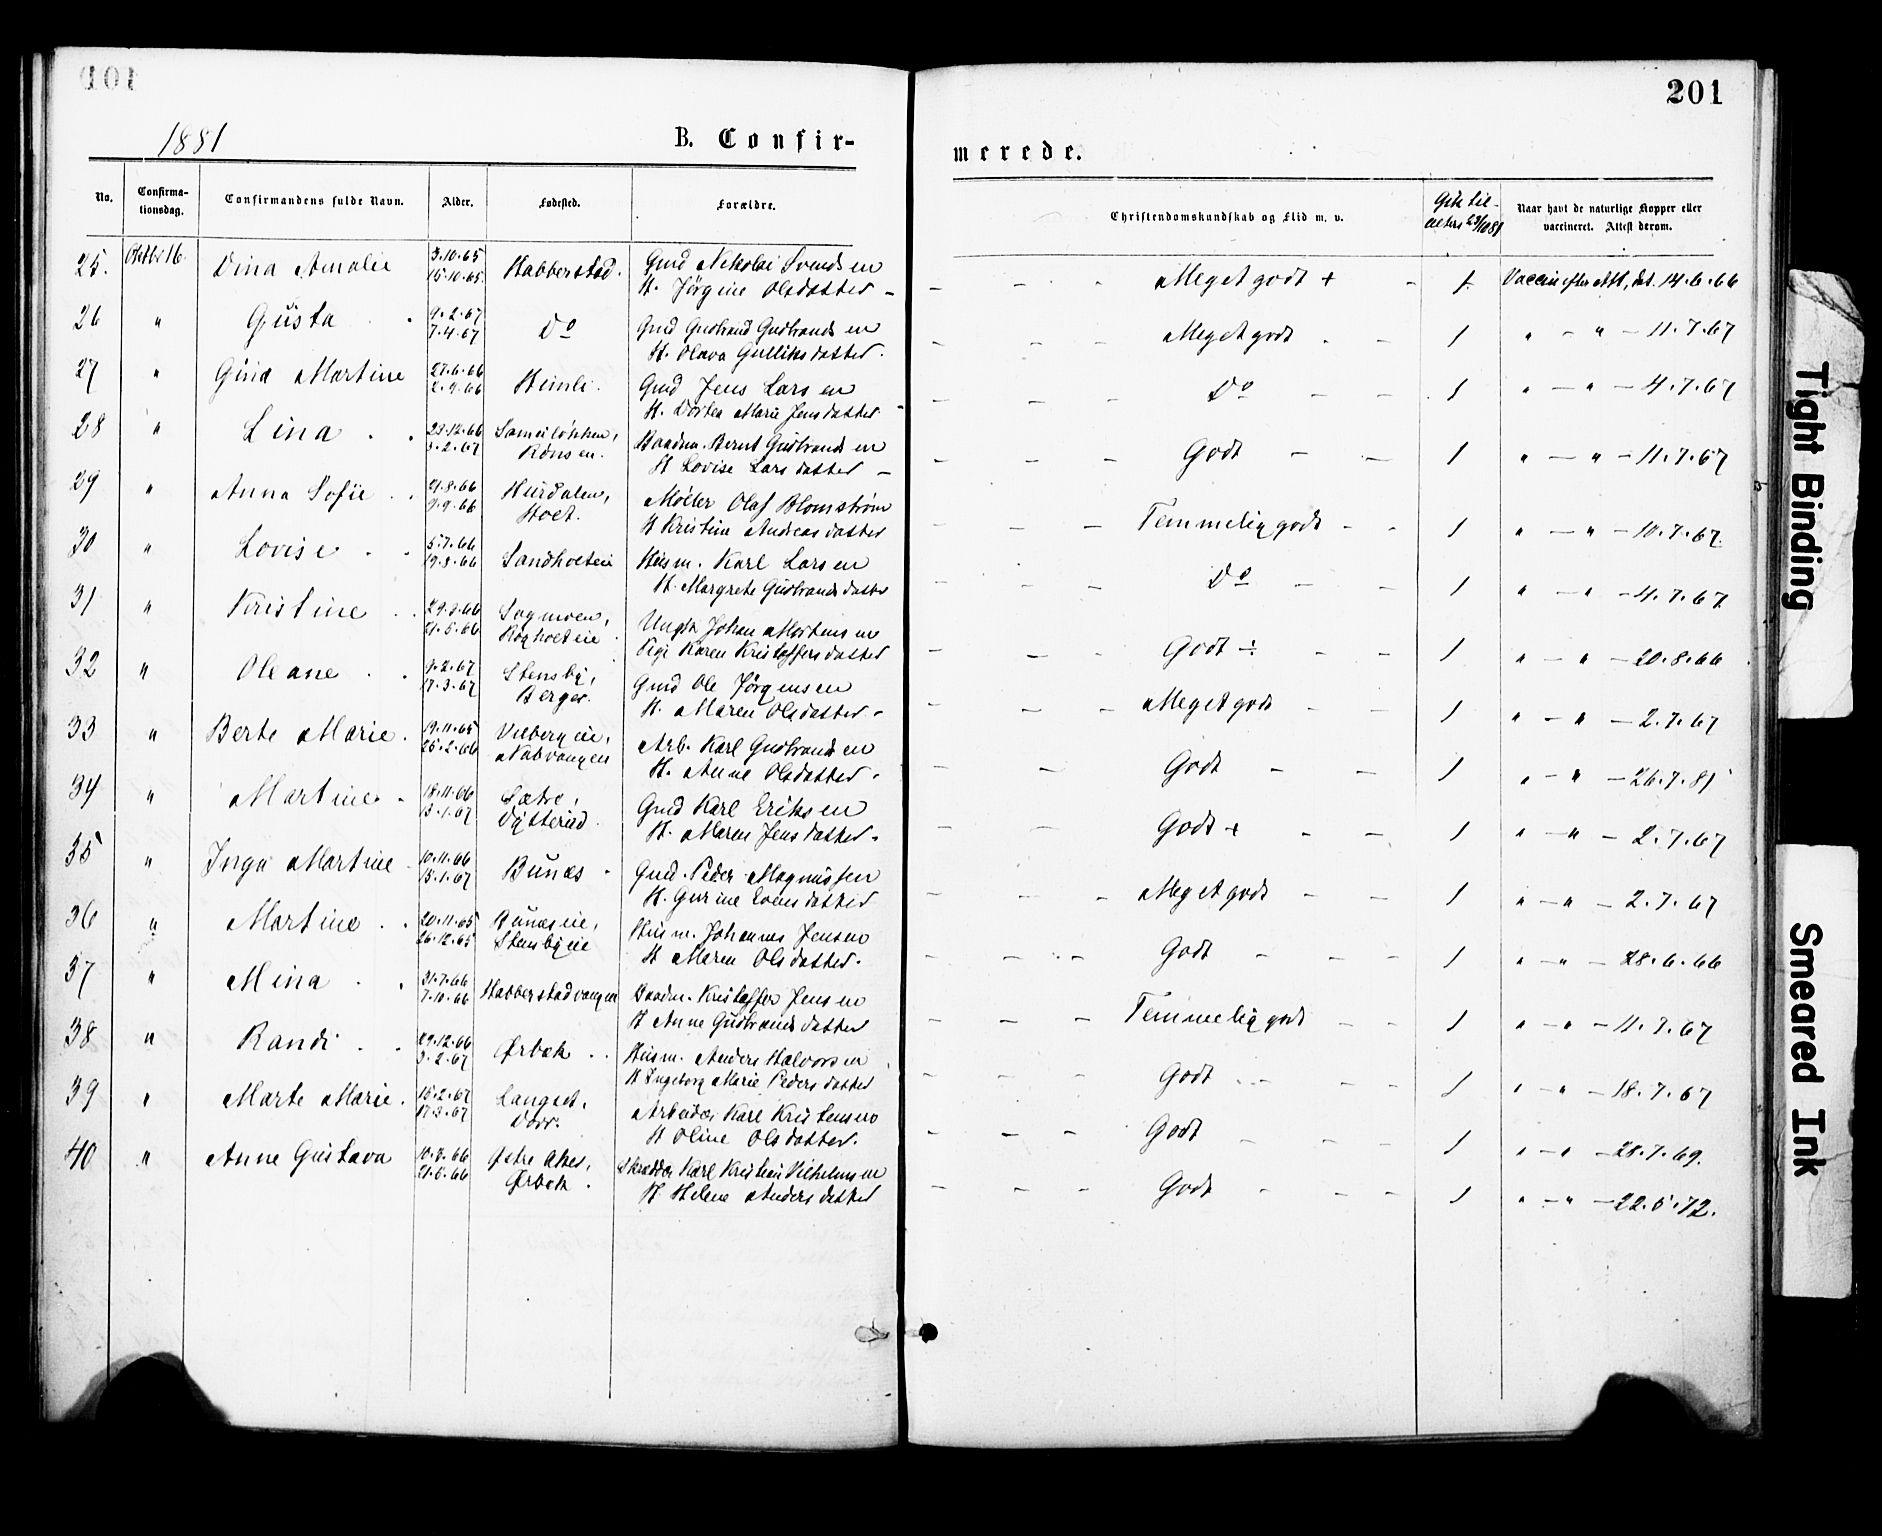 101
201
1881
B. Confir-
merede.
No.
Confirma-
tionsdag.
Confirmandens fulde Navn.
Alder.
Fødested.
Forældre.
Christendomskundskab og Flid m. v.
Gik til
alters 23/10 81
Naar havt de naturlige Kopper eller
vaccineret. Attest derom.
25. Oktbr 16. Dina Amalie 3.10.65 Habberstad. Gmd Nikolai Svendsen
15.10.65 H. Jørgine Olsdatter – – – · Meget godt + – 1 Vaccin efter Att. dat. 14.6.66
26 " Gusta 9.2.67 Do Gmd Gudbrand Gudbrandsen
7.4.67 H. Olava Gulliksdatter. – – – Meget godt – – 1 " – " – 11.7.67
27 " Gina Martine 27.6.66 Himle. Gmd Jens Larsen
2.9.66 H. Dortea Marie Jensdatter – – – – Do – – 1 " – " – 4.7.67
28 " Lina 23.12.66 Baadm. Bernt Gudbrandsen
3.2.67 Rønsen. H Lovise Larsdatter – – – – Godt – – 1 " – " – 11.7.67
29 " Anna Sofie 21.8.66 Hurdalen, Møller Olaf Blomstrøm
9.9.66 Holt. H Kristine Andreasdatter – – – Temmelig godt – – 1 " – " – 10.7.67.
30 " Lovise 5.7.66 Sandholteie Husm. Karl Larsen
19.8.66 H. Margrete Gudbrandsdatter – – – Do – – 1 " – " – 4.7.67
31 " Kristine 29.3.66 Sogmoen, Ungk Johan Mortensen
21.5.66 Røgholteie Pige Karen Kristoffersdatter – – – Godt ÷ – – 1 " – " – 20.8.66
32 " Oleane 9.2.67 Stensby, Gmd Ole Jørgensen
17.3.67 Berger. H. Maren Olsdatter – – – – Meget godt – – 1 " – " – 2.7.67
33 " Berte Marie. 19.11.65 Viebergeie, Arb. Karl Gudbrandsen
25.2.66 H. Anne Olsdatter. – – Godt – – 1 " – " – 26.7.81
34 " Martine 18.11.66 Sætre, Gmd Karl Eriksen
13.1.67 Dysterud. H. Maren Jensdatter. – – Godt + – – 1 " – " – 2.7.67
35 " Inga Martine 10.11.66 Bunæs Gmd. Peder Magnussen
13.1.67 H. Gurine Evensdatter – – – Meget godt – – 1 " – " – 2.7.67
36 " Martine 20.11.65 Bunæseie, Husm. Johannes Jensen
26.12.65 Stensbyeie H Maren Olsdatter. – – – Godt – – – 1 " – " – 28.6.66
37 " Mina 31.7.66 Habberstadvangen Baadm. Kristoffer Jensen
7.10.66 H Anne Gudbrandsdatter – – – Temmelig godt – – 1 " – " – 11.7.67
38 " Randi 29.12.66 Ørbek Husm. Anders Halvorsen
3.2.67 H Ingeborg Marie Pedersdatter – – – Godt – – – 1 " – " – 18.7.67
39 " Marte Marie. 15.2.67 Langset, Arbeider Karl Kristensen
17.3.67 Dorr. H Oline Olsdatter. – – – Godt – – – 1 " – " – 28.7.69.
40 " Anne Gustava 10.3.66 Østre Aker, Skrædder Karl Kristian Vilhelmsen
21.5.66 Ørbek. H Helene Andersdatter – – – Godt – – – 1 " – " – 22.5.72.
Tight Binding
Smeared Ink